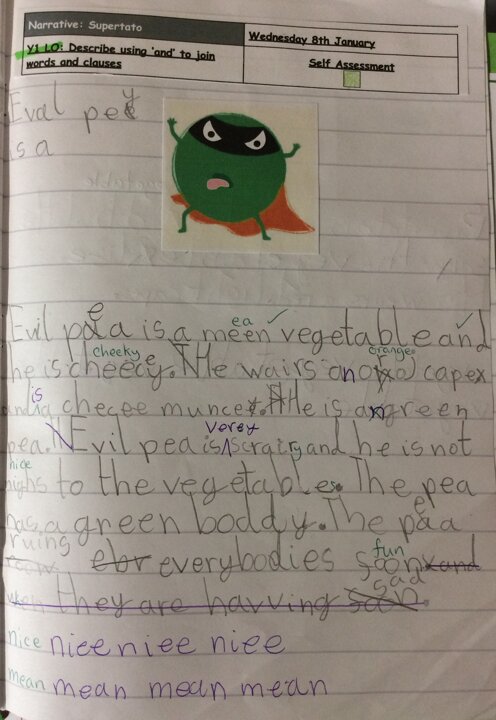 Narrative: Supertato
Wednesday 8th January
Y1 LO: Describe using 'and' to join
words and clauses
Self Assessment
Eval pey
is a
e
Evil paa is a meen vegetable and
ea ✓ ✓
cheeky e orange
he is cheecy. He wairs an capex
is
a checee muncey. He is an green
verey
pea. Evil pea is scratry and he is not
nice
nighs to the vegetables. The pea
has a green boddy. The pea
ruing fun
ebr everybodies soon and
sad
when they are havving san.
nice niee niee niee
mean mean mean mean